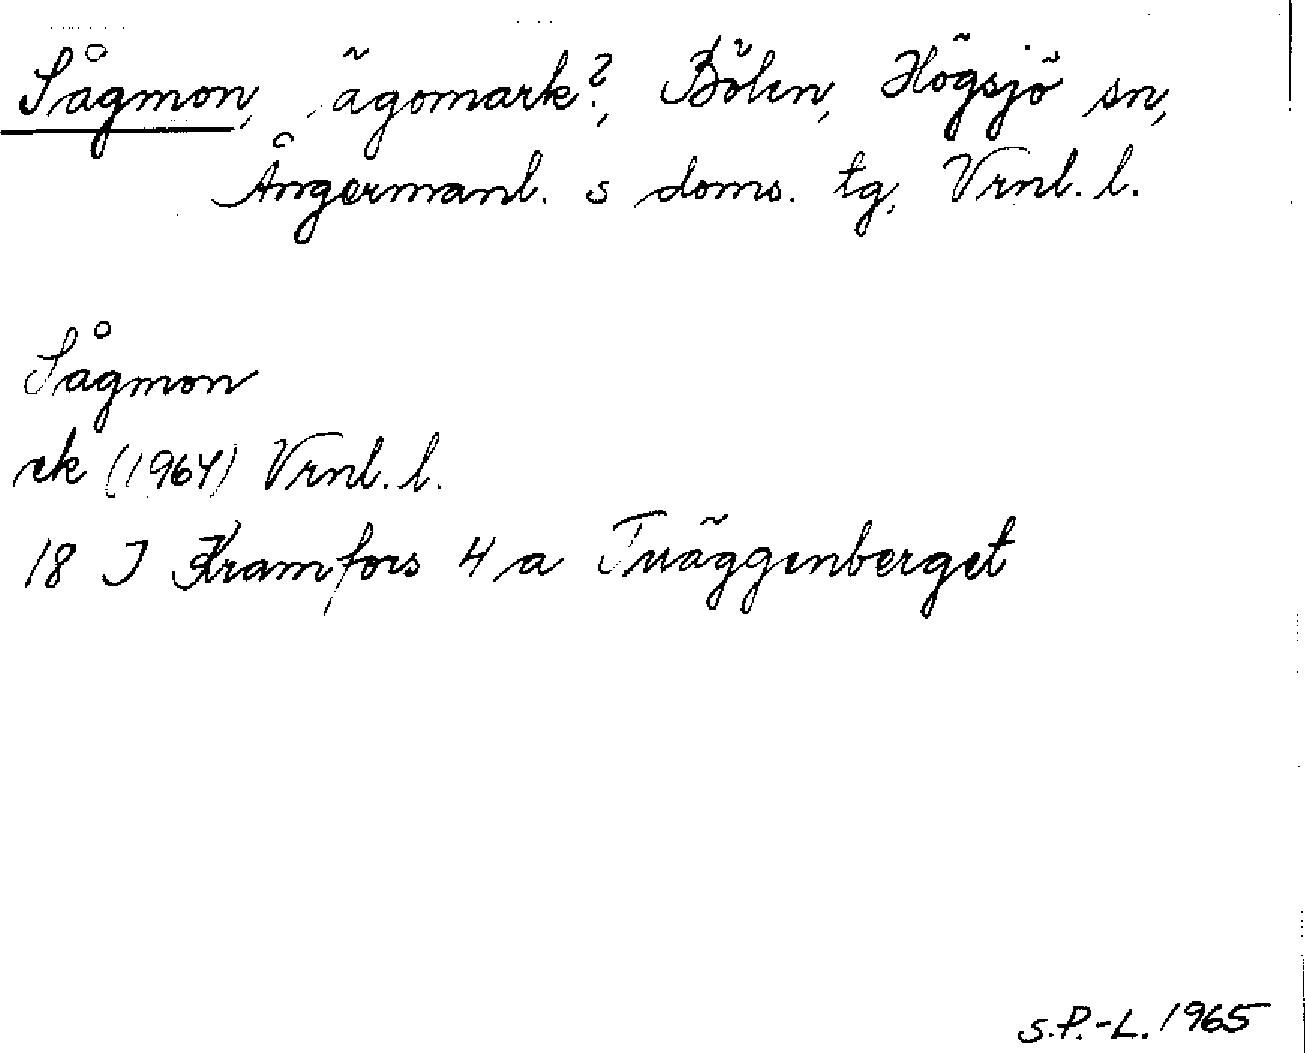 Sågmon, ägomark?, Bölen, Högsjö sn,
Ångermanl. s doms. tg, Vrnl. l.
Sågmon
ek (1964) Vrnl. l.
18 I Kramfors 4 a Tväggenberget
S.P.-L. 1965